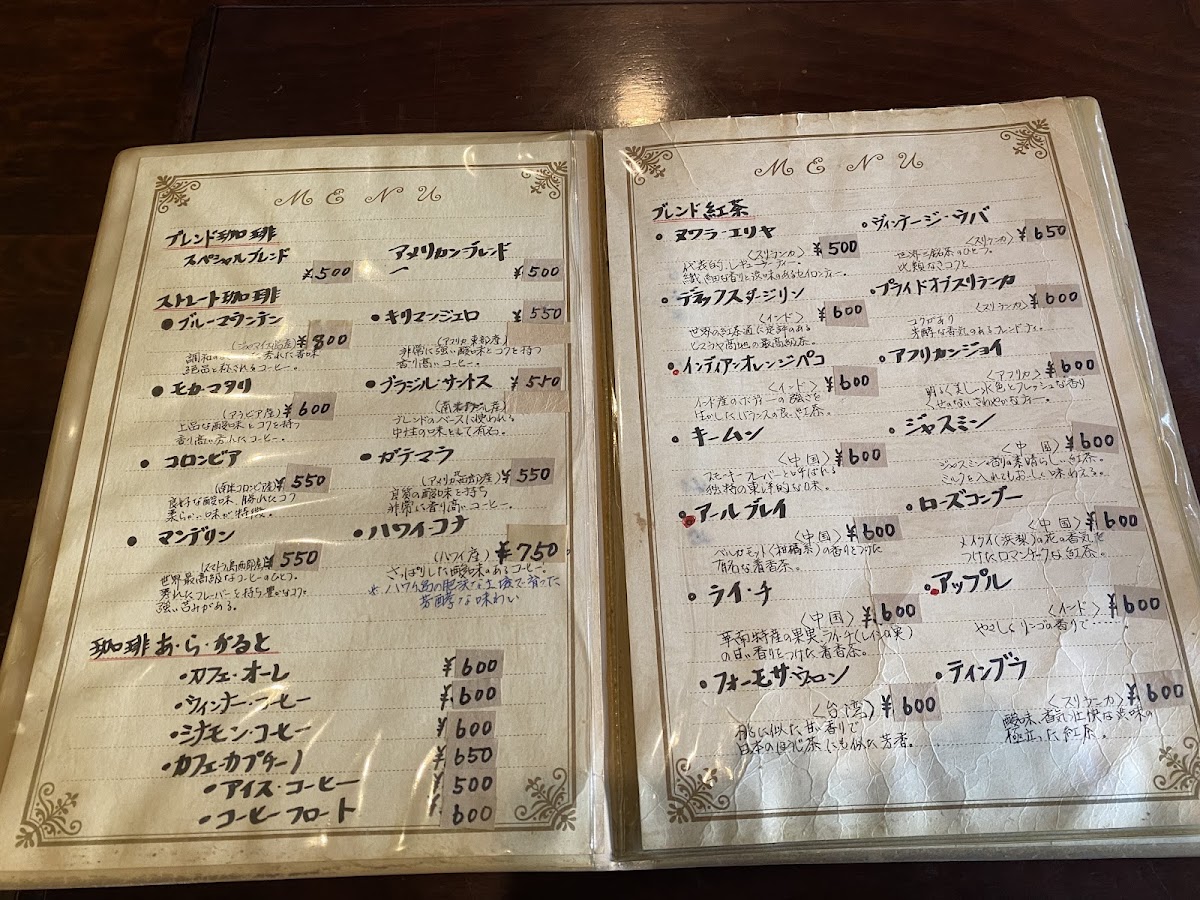 MENU
ブレンド珈琲
スペシャルブレンド
¥500
アメリカンブレンド
¥500
ストレート珈琲
・ブルーマウンテン
¥800
絶品と称されるコーヒー。
・キリマンジェロ ¥550
(アフリカ東部産)
非常に強い酸味とコクを持つ
香り高いコーヒー。
・モカ・マタリ
(アラビア産) ¥600
上品な酸味とコクを持つ
香り高い秀れたコーヒー。
・ブラジル・サントス ¥550
ブレンドのベースに使われる
中性の味として有名。
・コロンビア
(南米コロンビア産) ¥550
良好な酸味、勝れたコク
柔らかい味が特徴。
・ガテマラ
¥550
良質の酸味を持ち
非常に香り高いコーヒー。
・マンデリン
¥550
世界最高級なコーヒーのひとつ。
秀れたフレーバーと持ち豊かなコク。
強い苦みがある。
・ハワイ・コナ
(ハワイ産) ¥750
さっぱりした酸味のあるコーヒー。
※ハワイ島の肥沃な土壌で育った
芳醇な味わい
珈琲あ・ら・かると
・カフェ・オーレ ¥600
・ウィンナー・コーヒー ¥600
・シナモン・コーヒー ¥600
・カフェ・カプチーノ ¥650
・アイス・コーヒー ¥500
・コーヒーフロート ¥600
MENU
ブレンド紅茶
・ヌワラ・エリヤ
〈スリランカ〉 ¥500
代表的、レギュラーティー。
繊細な香りと渋味のあるセイロンティー。
・ヴィンテージ・ウバ
〈スリランカ〉 ¥650
世界三銘茶のひとつ。
比類なきコクと
・デラックスダージリン
〈インド〉 ¥600
世界の紅茶通に定評のある
ヒマラヤ高地の最高級茶。
・プライドオブスリランカ
〈スリランカ〉 ¥600
コクがあり
芳醇な香気のあるブレンドティ。
・インディアンオレンジペコ
〈インド〉 ¥600
インド産のボディーの強さを
生かしたバランスの良い紅茶。
・アフリカンジョイ
〈アフリカ〉 ¥600
明るく美しい水色とフレッシュな香り
くせのないさわやかなティー。
・キームン
〈中国〉 ¥600
スモーキーフレーバーと呼ばれる
独特の東洋的な味。
・ジャスミン
〈中国〉 ¥600
ジャスミンの香りの素晴らしい紅茶。
ミルクを入れてもおいしい味わえる。
・アールグレイ
〈中国〉 ¥600
ベルガモット(柑橘系)の香りをつけた
有名な着香茶。
・ローズコングー
〈中国〉 ¥600
メイクイ(浜梨)の花の香気を
つけたロマンチークな紅茶。
・ライ・チ
〈中国〉 ¥600
華南特産の果実、ライチ(レイシの実)
の甘い香りをつけた着香茶。
・アップル
〈インド〉 ¥600
やさしくリンゴの香りで……。
・フォーモサウーロン
〈台湾〉 ¥600
桃に似た甘い香りで
日本のほうじ茶にも似た芳香。
・ティンブラ
〈スリランカ〉 ¥600
極立った紅茶。